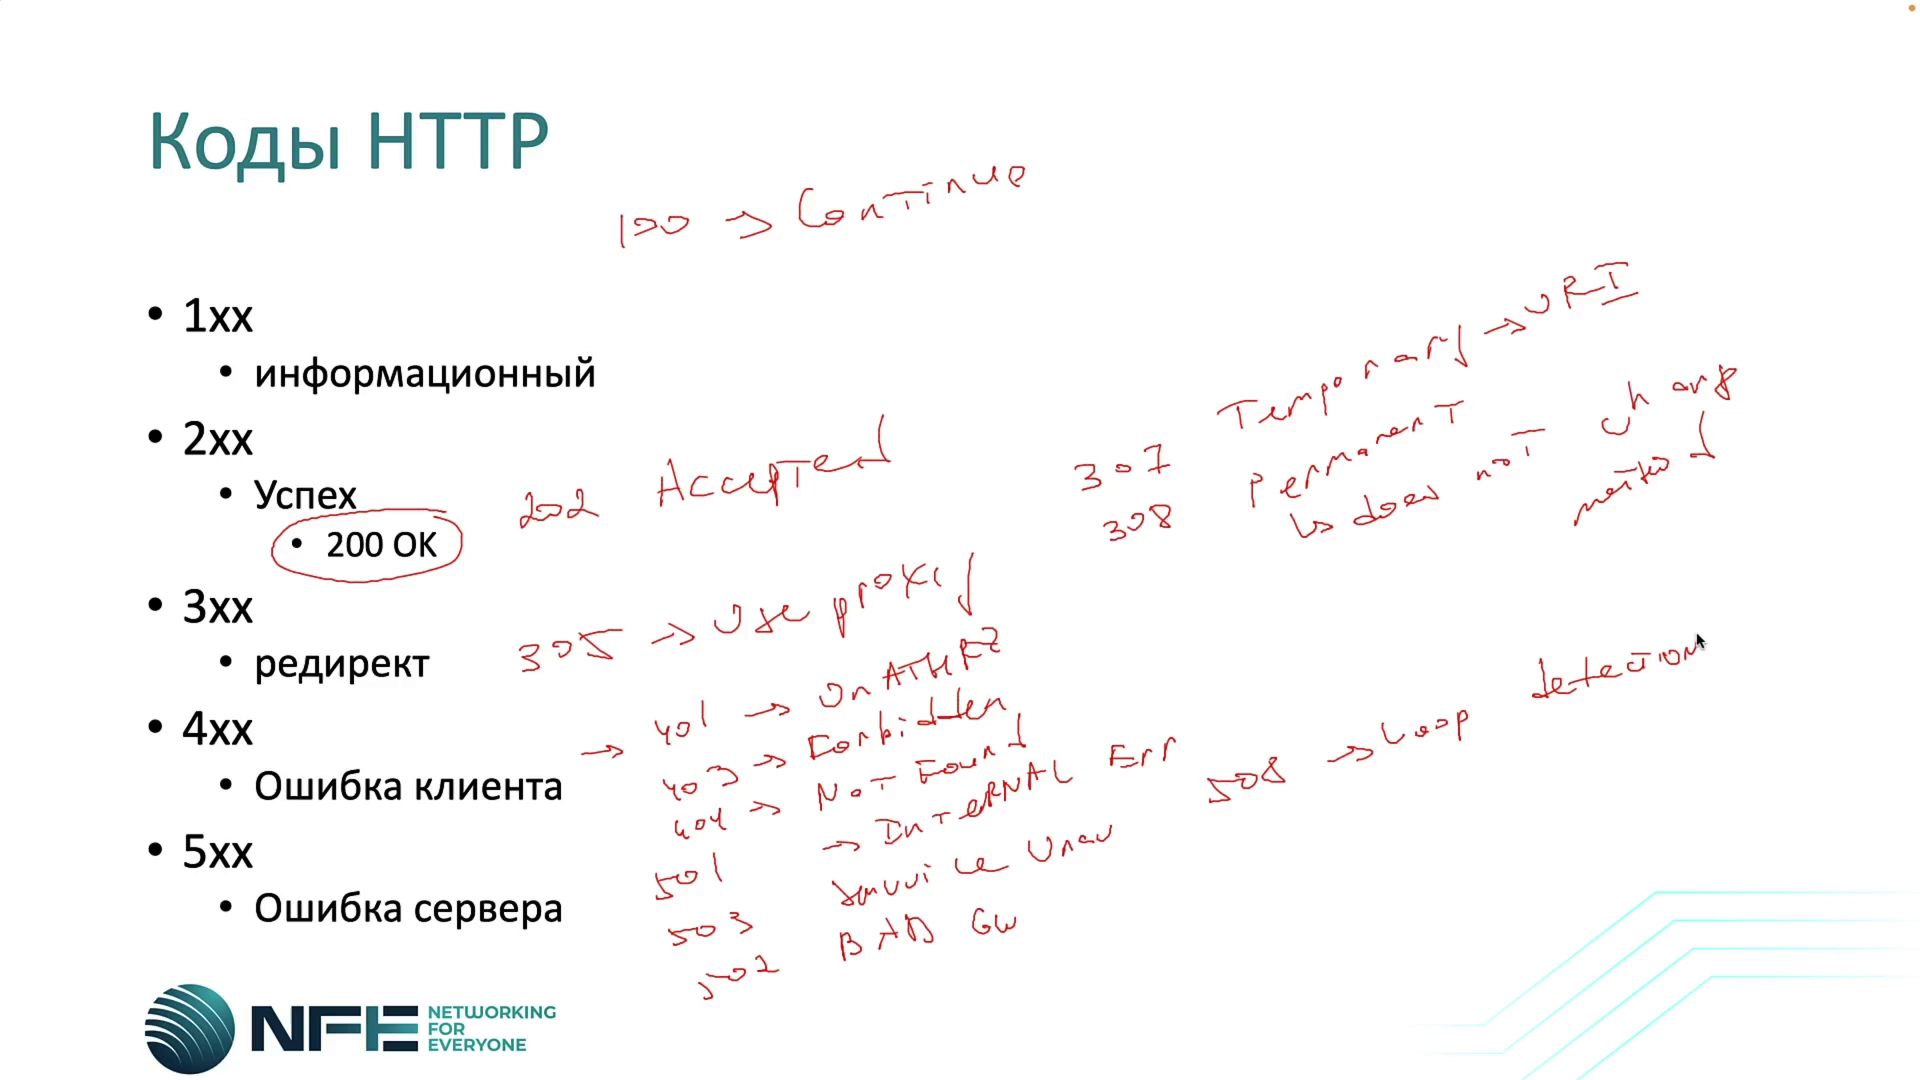 Коды HTTP
100 → Continue
• 1xx
• информационный
• 2xx
• Успех
• 200 OK
202 Accepted
307 Temporary → URI
308 Permanent
↳ does not change
method
• 3xx
• редирект
305 → Use proxy
• 4xx
• Ошибка клиента
→ 401 → UnATHRZ
403 → Forbidden
404 → Not Found
• 5xx
• Ошибка сервера
501 → InTeRNAL Err
503 Service Unav
502 BAD GW
508 → Loop detection
NFE NETWORKING
FOR
EVERYONE